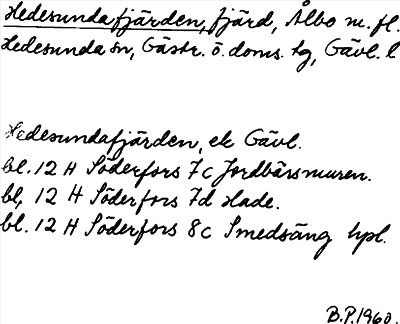 Hedesundafjärden, fjärd, Ålbo m. fl.
Hedesunda sn, Gästr. ö. doms. tg, Gävl. l
Hedesundafjärden, ek Gävl.
bl. 12 H Söderfors 7c Jordbärsmuren.
bl. 12 H Söderfors 7d Hade.
bl. 12 H Söderfors 8c Smedsäng hpl.
B.P. 1960.